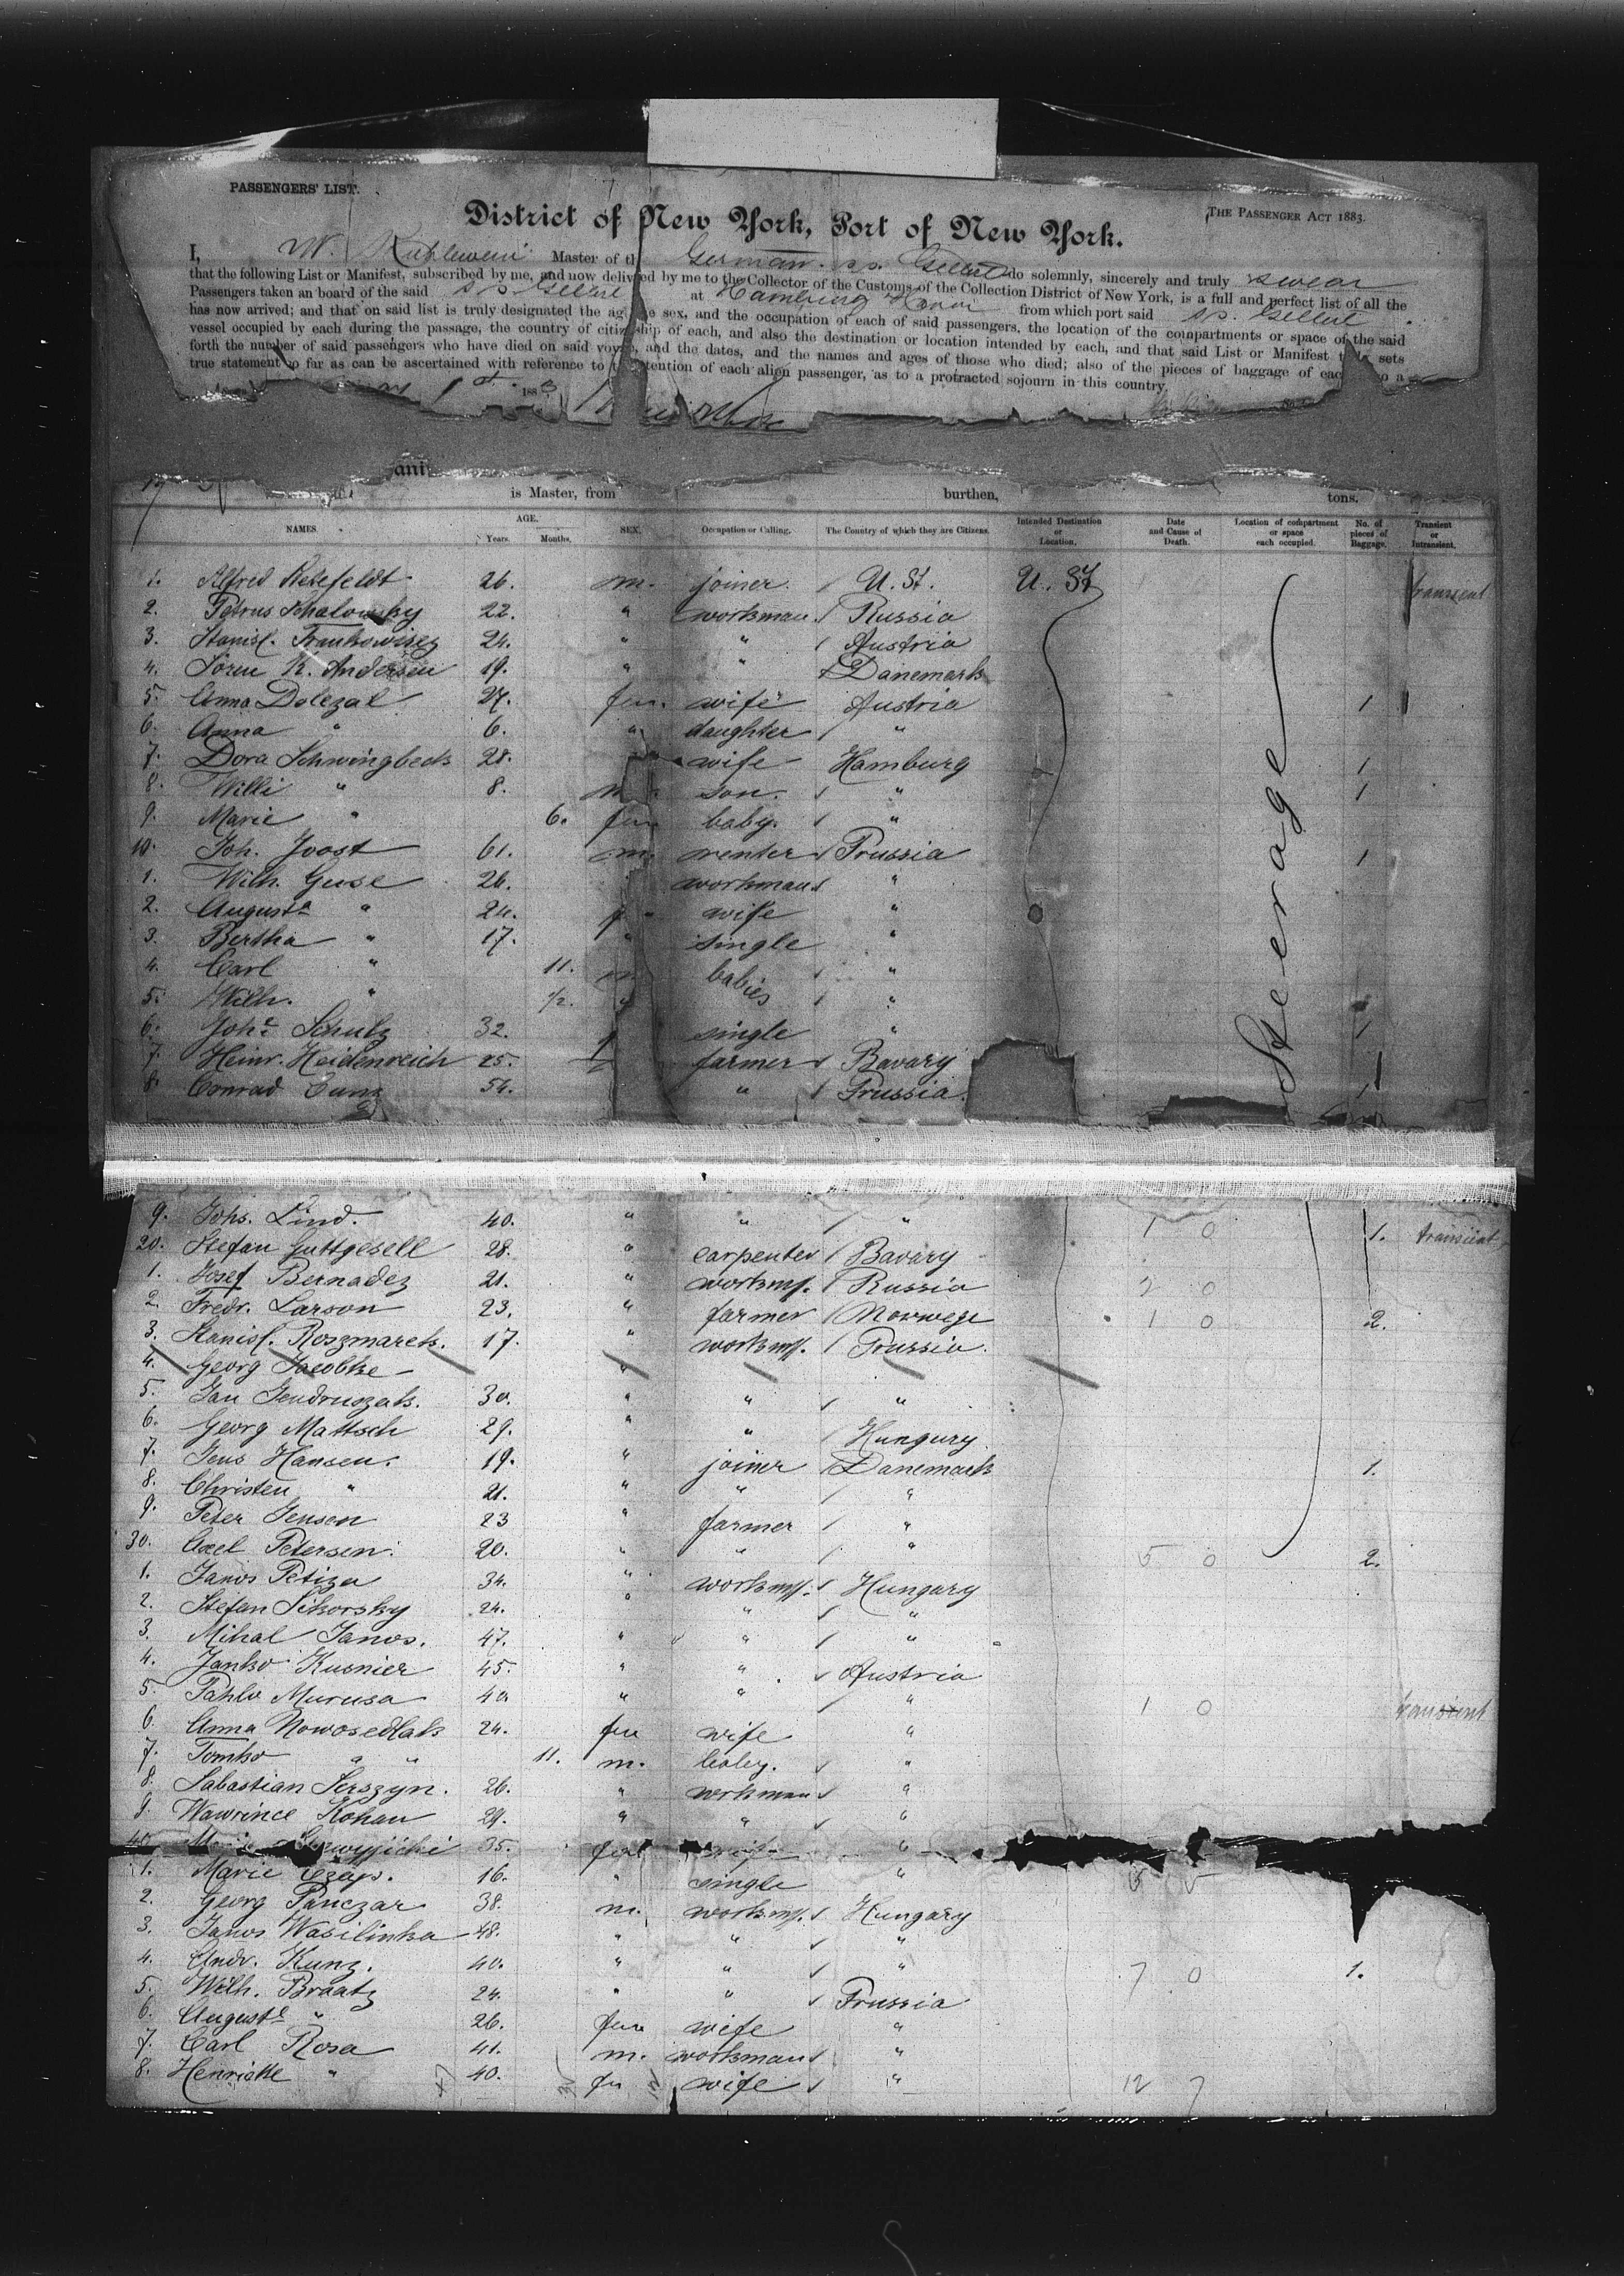 PASSENGERS' LIST.
THE PASSENGER ACT 1883.
District of New York, Port of New York.
I, W. Kuhlewein Master of the German s.s. Gellert do solemnly, sincerely and truly swear
that the following List or Manifest, subscribed by me, and now delivered by me to the Collector of the Customs of the Collection District of New York, is a full and perfect list of all the
Passengers taken on board of the said s.s. Gellert at Hamburg Havre from which port said s.s. Gellert
has now arrived; and that on said list is truly designated the age, the sex, and the occupation of each of said passengers, the location of the compartments or space of the said
vessel occupied by each during the passage, the country of citizenship of each, and also the destination or location intended by each, and that said List or Manifest sets
forth the number of said passengers who have died on said voyage, and the dates, and the names and ages of those who died; also of the pieces of baggage of each a
true statement so far as can be ascertained with reference to intention of each alien passenger, as to a protracted sojourn in this country.
188
is Master, from burthen, tons.
NAMES. AGE. Years. Months. SEX. Occupation or Calling. The Country of which they are Citizens. Intended Destination or Location. Date and Cause of Death. Location of compartment or space each occupied. No. of pieces of Baggage. Transient or Intransient.
1. Alfred 26. m. joiner / U. St. U. St transient
2. Petrus 22. " workman / Russia
3. Stanisl. 24. " " / Austria
4. Sören K. Andersen 19. " " / Danemark
5. Anna Dolezal 27. fem. wife Austria 1
6. Anna " 6. " daughter / "
7. Dora Schwingbeck 28. wife Hamburg 1
8. Willi " 8. m son. / " 1
9. Marie " 6. fem baby. / "
10. Joh. Joost 61. m. renter / Prussia 1
1. Wilh. Guse 26. workman / "
2. Auguste " 24. f wife "
3. Bertha " 17. " single "
4. Carl " 11. m babies / "
5. Wilh. " 1/2. " / "
6. Johe Schulz 32. single " 1
7. Heinr. Heidenreich 25. farmer / Bavary 1
8. Conrad 54. " / Prussia. 1
Steerage
9. Johs. Lind. 40. " " / " 1 0 1. transient
20. Stefan Guttgesell 28. " carpenter / Bavary
1. Josef Bernadez 21. " workm. / Russia 2 0
2. Fredr. Larson 23. " farmer / Norwege 1 0 2.
3. Stanisl. Roszmarek. 17. " workm. / Prussia.
4. Georg "
5. Jan 30. " " / "
6. Georg Mattsch 29. " " / Hungury.
7. Jens Hansen. 19. " joiner / Danemark 1.
8. Christen " 21. " " / "
9. Peter Jensen 23 " farmer / "
30. Axel Petersen. 20. " " / " 5 0 2.
1. Janos Petiza 34. " workm. / Hungary
2. Stefan Sikorsky 24. " " / "
3. Mihal Janos. 47. " " / "
4. Janko Kusnier 45. " " / Austria
5. Pahlo Murusa 40 " " " 1 0 transient
6. Anna Nowosedlak 24. fem wife "
7. Tomko " " 11. m. baby. / "
8. Sabastian Serszyn. 26. " workman / "
9. Wawrince Kohan 29. " " / "
40. 35. fem wife "
1. Marie Czaps. 16. " single "
2. Georg Panczar 38. m. workm. / Hungary
3. Janos Wasilinka 48. " " / "
4. Andr. Kunz. 40. " " / " 7 0 1.
5. Wilh. Braatz 24. " " / Prussia
6. Auguste " 26. fem wife "
7. Carl Rosa 41. m. workman / "
8. Henriette " 40. fm wife / " 12 7